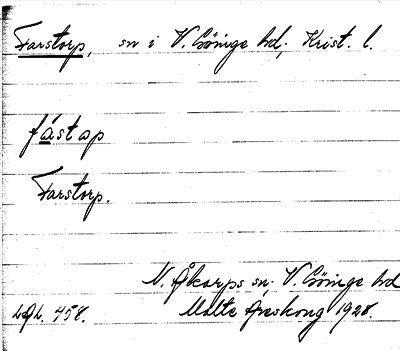 Farstorp, sn i V. Göinge hd, Krist. l.
fástap
Farstorp.
N. Åkarps sn. V. Göinge hd
Lgh. 458. Malte Areskoug 1928.